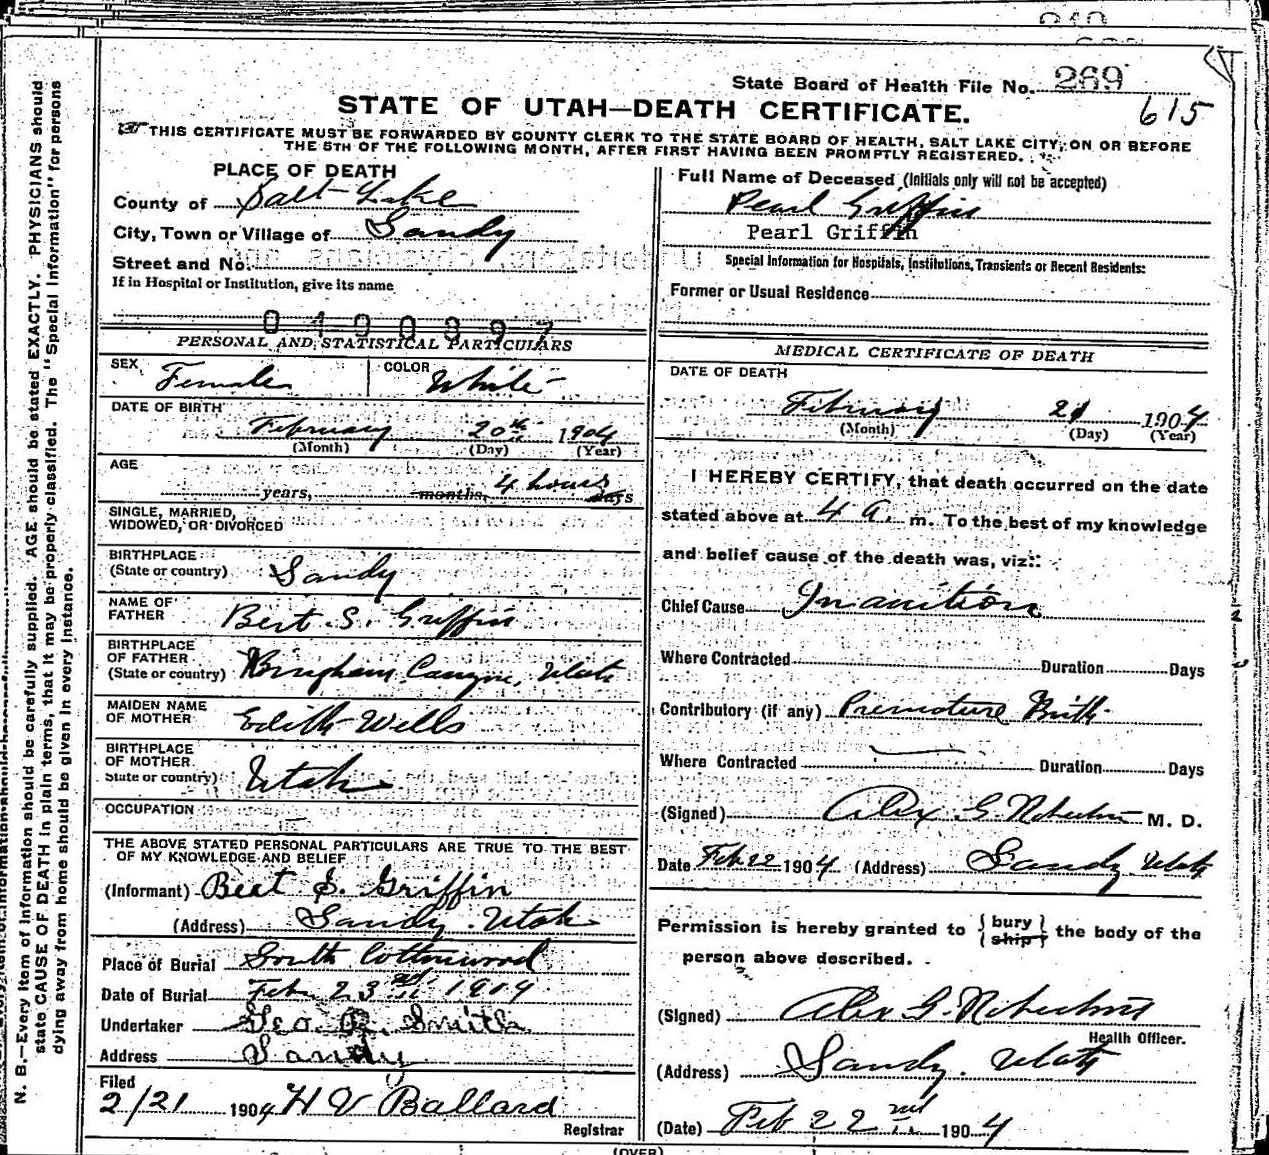 State Board of Health File No. 269
615
STATE OF UTAH—DEATH CERTIFICATE.
THIS CERTIFICATE MUST BE FORWARDED BY COUNTY CLERK TO THE STATE BOARD OF HEALTH, SALT LAKE CITY, ON OR BEFORE
THE 5TH OF THE FOLLOWING MONTH, AFTER FIRST HAVING BEEN PROMPTLY REGISTERED.
PLACE OF DEATH
County of Salt Lake
City, Town or Village of Sandy
Street and No.
If in Hospital or Institution, give its name
0190397
PERSONAL AND STATISTICAL PARTICULARS
SEX Female COLOR White
DATE OF BIRTH
February 20th 1904
(Month) (Day) (Year)
AGE
years, months, 4 hours days
SINGLE, MARRIED,
WIDOWED, OR DIVORCED
BIRTHPLACE
(State or country) Sandy
NAME OF
FATHER Bert. S. Griffin
BIRTHPLACE
OF FATHER
(State or country) Bingham Canyon, Utah
MAIDEN NAME
OF MOTHER Edith Wells
BIRTHPLACE
OF MOTHER
State or country) Utah
OCCUPATION
THE ABOVE STATED PERSONAL PARTICULARS ARE TRUE TO THE BEST
OF MY KNOWLEDGE AND BELIEF
(Informant) Bert S. Griffin
(Address) Sandy. Utah
Place of Burial South Cottonwood
Date of Burial Feb. 23rd 1904
Undertaker Geo. R. Smith
Address Sandy
Filed
2/21 1904 H V Ballard
Registrar
Full Name of Deceased (Initials only will not be accepted)
Pearl Griffin
Pearl Griffin
Special Information for Hospitals, Institutions, Transients or Recent Residents:
Former or Usual Residence
MEDICAL CERTIFICATE OF DEATH
DATE OF DEATH
February 21 1904
(Month) (Day) (Year)
I HEREBY CERTIFY, that death occurred on the date
stated above at 4 a. m. To the best of my knowledge
and belief cause of the death was, viz::
Chief Cause Inanition
Where Contracted Duration Days
Contributory (if any) Premature Birth
Where Contracted Duration Days
(Signed) Alex G. Robertson M. D.
Date Feb 22 1904 (Address) Sandy Utah
Permission is hereby granted to { bury } { ship } the body of the
person above described.
(Signed) Alex G. Robertson
Health Officer.
(Address) Sandy. Utah
(Date) Feb 22nd 1904
(OVER)
N. B.—Every item of information should be carefully supplied. AGE should be stated EXACTLY. PHYSICIANS should
state CAUSE OF DEATH in plain terms, that it may be properly classified. The "Special Information" for persons
dying away from home should be given in every instance.